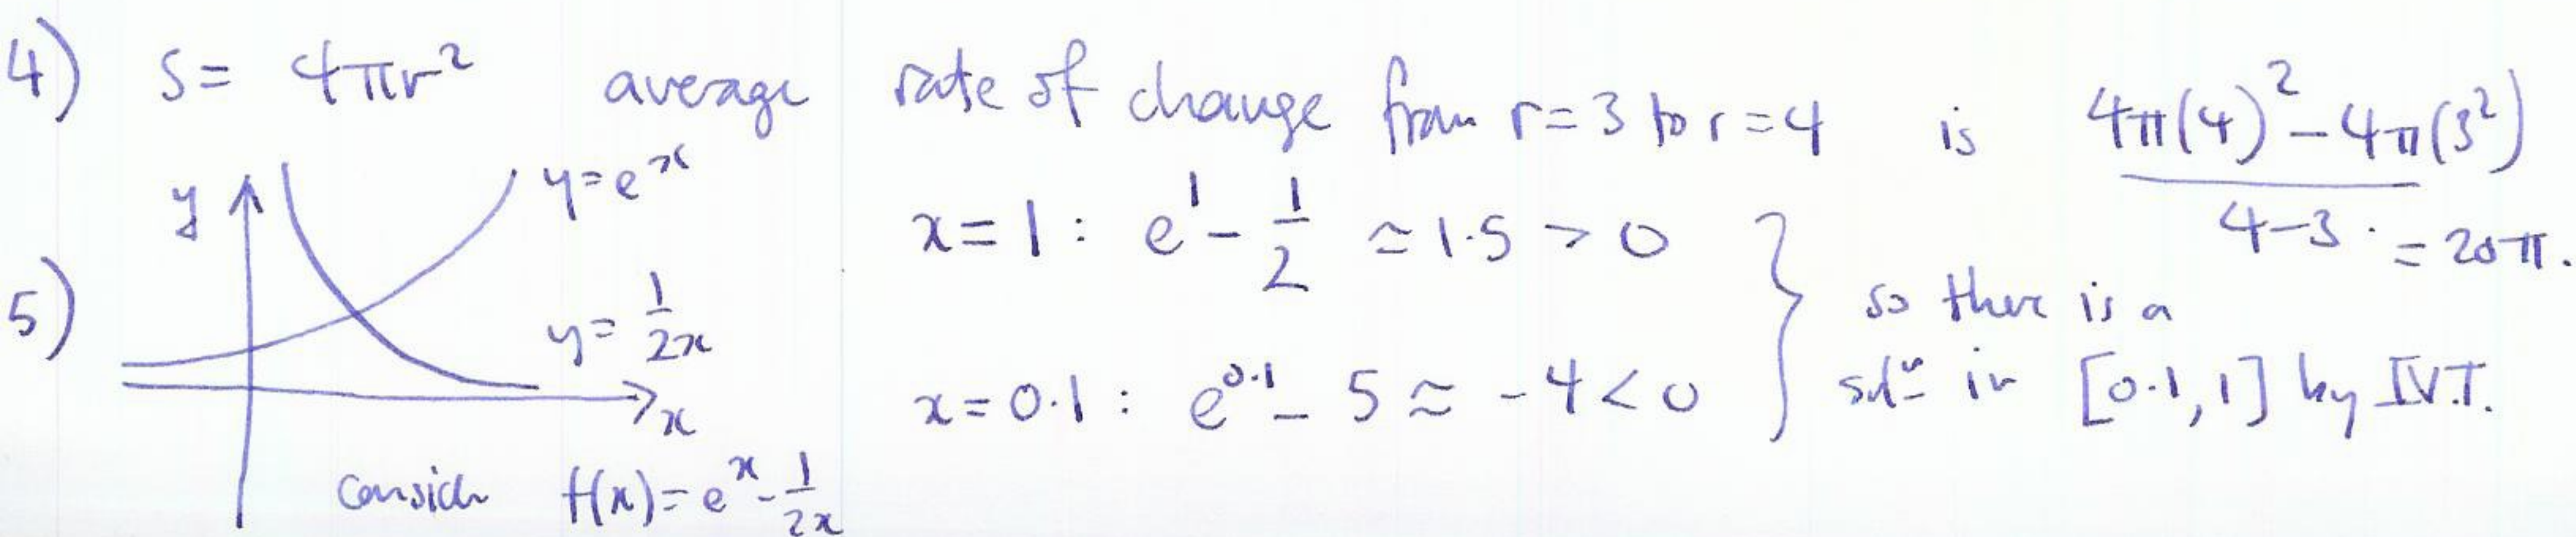 4) S = 4πr² average rate of change from r=3 to r=4 is (4π(4)² - 4π(3²))/(4-3) = 20π.
5) y
y=e^x
y = 1/2x
x
consider f(x) = e^x - 1/2x
x = 1 : e^1 - 1/2 ≃ 1.5 > 0
x = 0.1 : e^0.1 - 5 ≈ -4 < 0
} so there is a
solⁿ in [0.1, 1] by IVT.